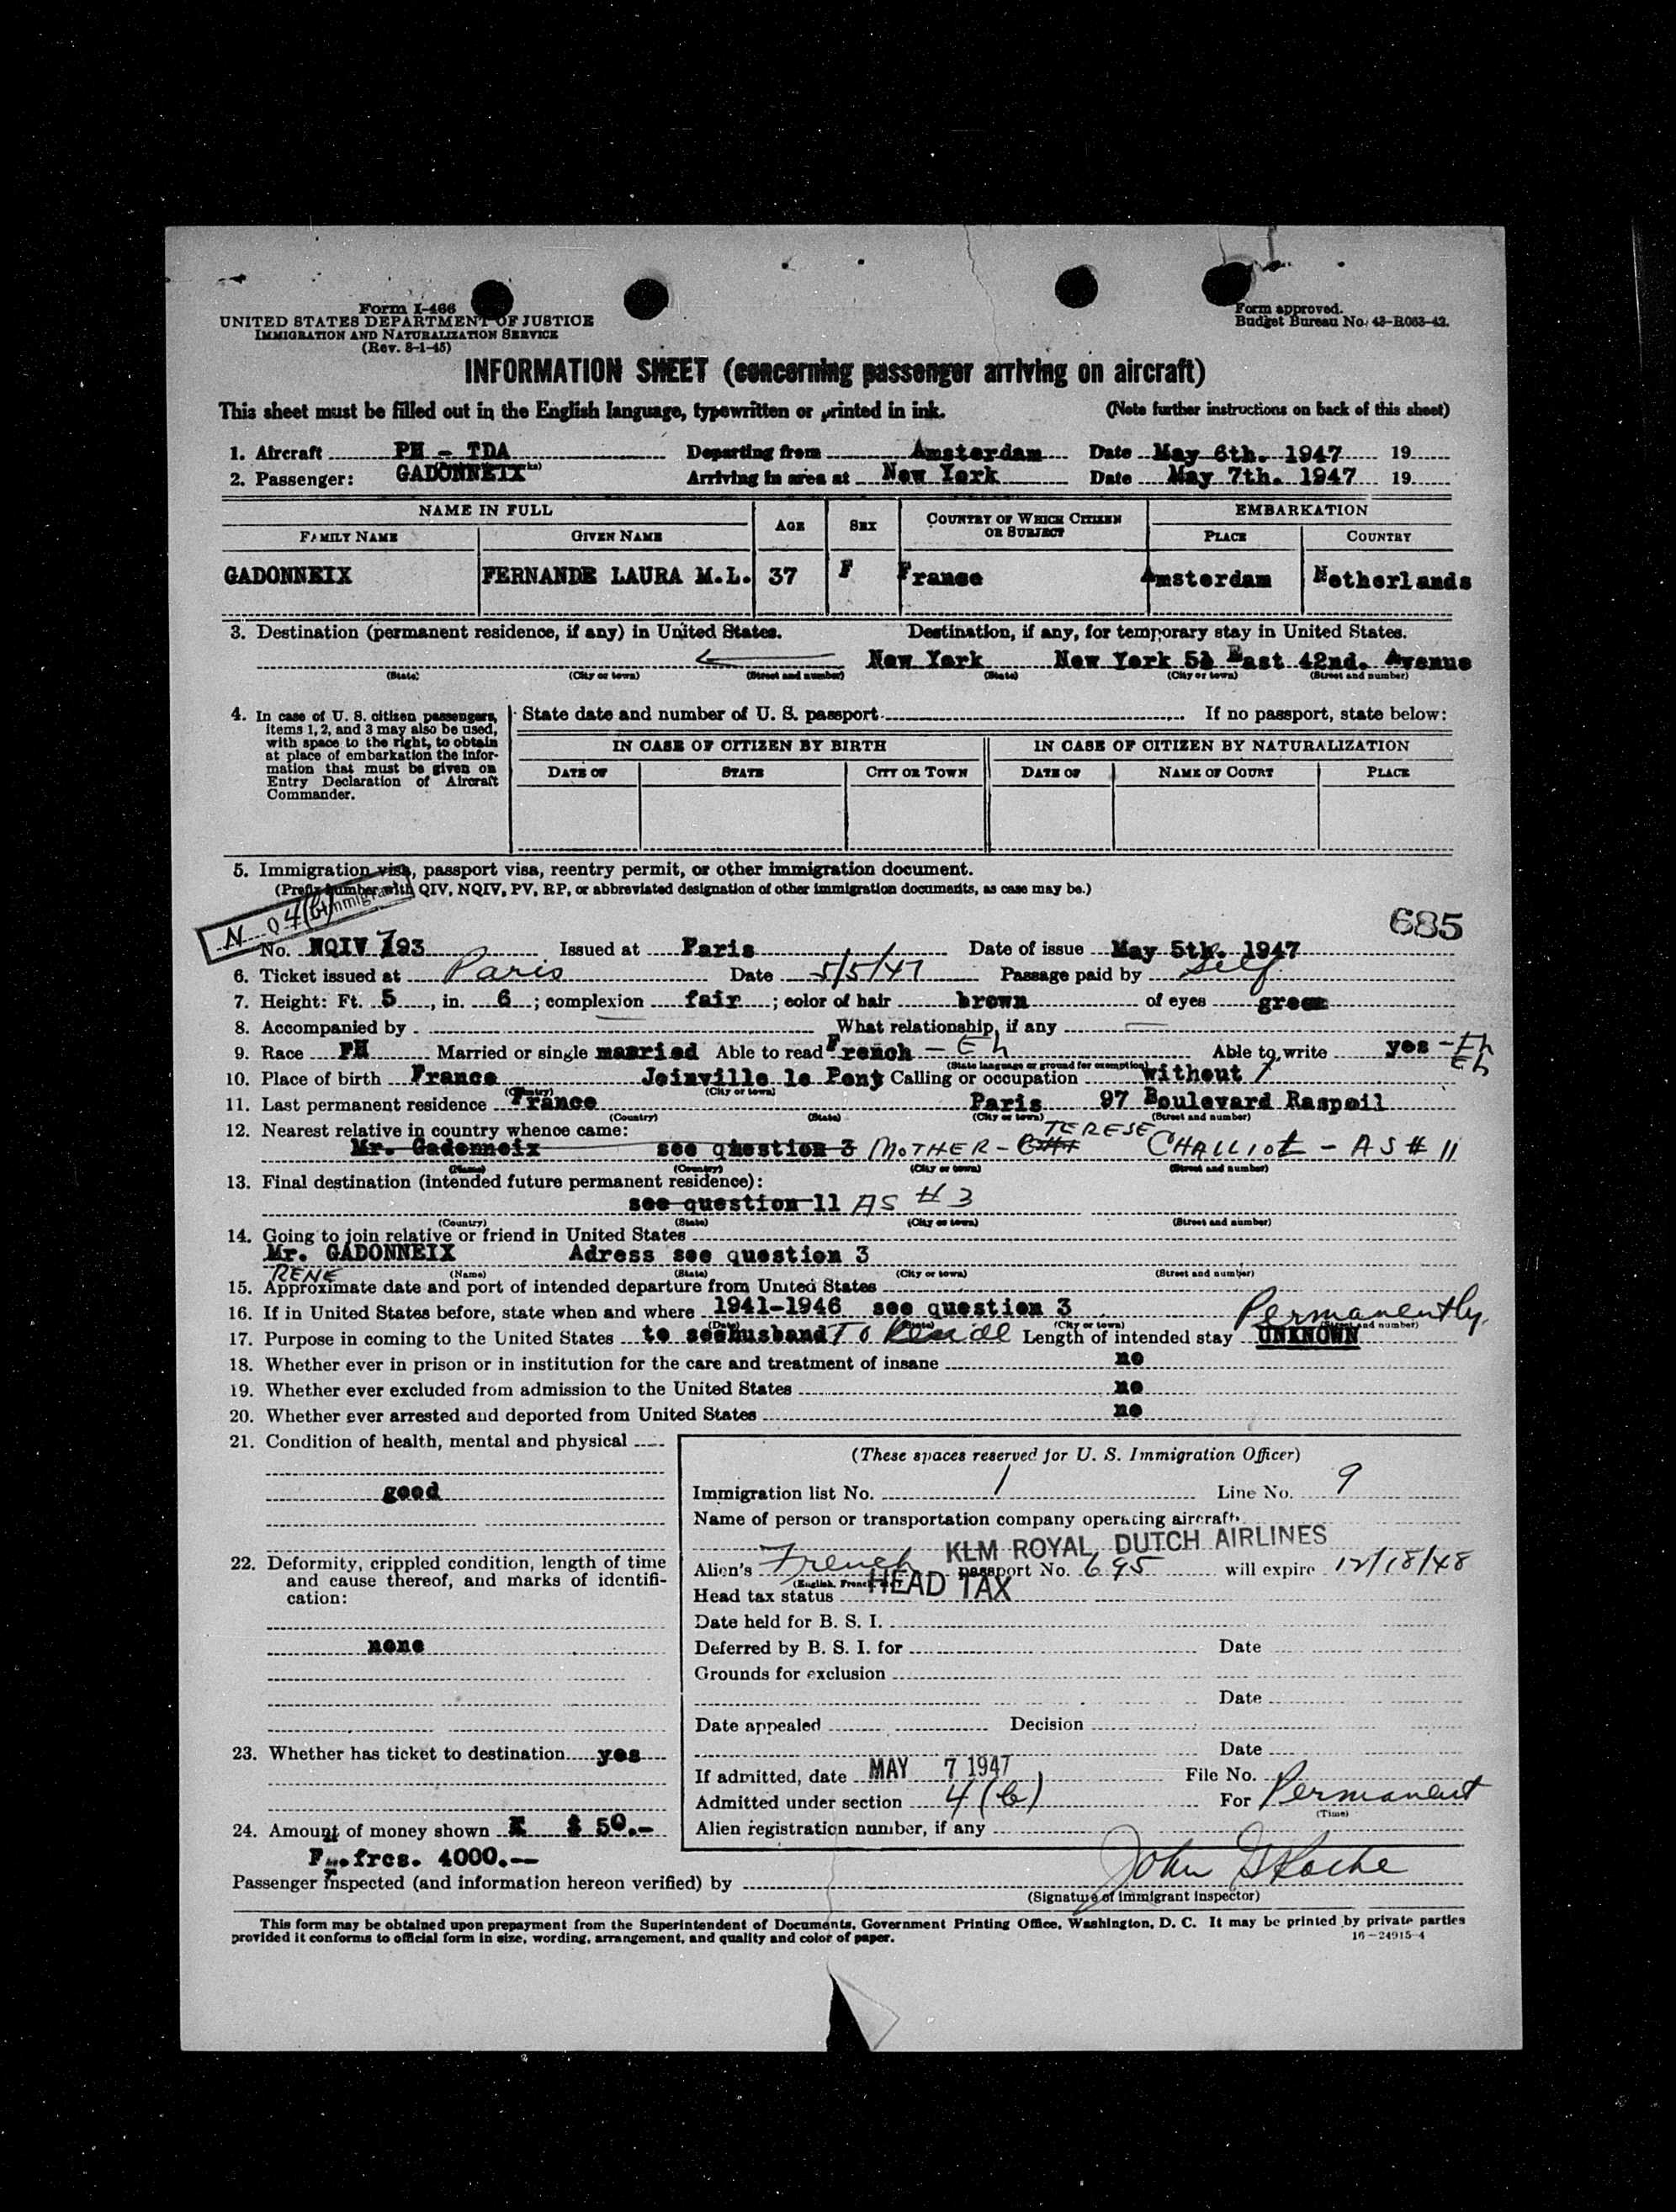 Form I-466
UNITED STATES DEPARTMENT OF JUSTICE
IMMIGRATION AND NATURALIZATION SERVICE
(Rev. 8-1-45)
Form approved.
Budget Bureau No. 43-R063-42.
INFORMATION SHEET (concerning passenger arriving on aircraft)
This sheet must be filled out in the English language, typewritten or printed in ink. (Note further instructions on back of this sheet)
1. Aircraft PH - TDA Departing from Amsterdam Date May 6th. 1947 19
2. Passenger: GADONNEIX Arriving in area at New York Date May 7th. 1947 19
NAME IN FULL AGE SEX COUNTRY OF WHICH CITIZEN OR SUBJECT EMBARKATION
FAMILY NAME GIVEN NAME PLACE COUNTRY
GADONNEIX FERNANDE LAURA M.L. 37 F France Amsterdam Netherlands
3. Destination (permanent residence, if any) in United States. Destination, if any, for temporary stay in United States.
New York New York East 42nd. Avenue
(State) (City or town) (Street and number) (State) (City or town) (Street and number)
4. In case of U. S. citizen passengers, items 1, 2, and 3 may also be used, with space to the right, to obtain at place of embarkation the information that must be given on Entry Declaration of Aircraft Commander.
State date and number of U. S. passport If no passport, state below:
IN CASE OF CITIZEN BY BIRTH IN CASE OF CITIZEN BY NATURALIZATION
DATE OF STATE CITY OR TOWN DATE OF NAME OF COURT PLACE
5. Immigration visa, passport visa, reentry permit, or other immigration document.
(Prefix number with QIV, NQIV, PV, RP, or abbreviated designation of other immigration documents, as case may be.)
N 0 4(b) Immigrant
685
No. NQIV 793 Issued at Paris Date of issue May 5th. 1947
6. Ticket issued at Paris Date 5/5/47 Passage paid by Self
7. Height: Ft. 5, in. 6; complexion fair; color of hair brown of eyes green
8. Accompanied by — What relationship, if any —
9. Race FH Married or single married Able to read French - Eh Able to write yes - Fh
Eh
(State language or ground for exemption)
10. Place of birth France Joinville le Pont Calling or occupation without
(Country) (City or town)
11. Last permanent residence France Paris 97 Boulevard Raspail
(Country) (State) (City or town) (Street and number)
12. Nearest relative in country whence came:
Mr. Gadonneix see question 3 MOTHER - TERESE CHALLIOT - AS # 11
(Name) (Country) (City or town) (Street and number)
13. Final destination (intended future permanent residence):
see question 11 AS # 3
(Country) (State) (City or town) (Street and number)
14. Going to join relative or friend in United States
Mr. GADONNEIX Adress see question 3
RENE (Name) (State) (City or town) (Street and number)
15. Approximate date and port of intended departure from United States
16. If in United States before, state when and where 1941-1946 see question 3
(Date) (State) (City or town) (Street and number)
Permanently.
17. Purpose in coming to the United States to see husband To Reside Length of intended stay UNKNOWN
18. Whether ever in prison or in institution for the care and treatment of insane no
19. Whether ever excluded from admission to the United States no
20. Whether ever arrested and deported from United States no
21. Condition of health, mental and physical
good
22. Deformity, crippled condition, length of time and cause thereof, and marks of identification:
none
23. Whether has ticket to destination yes
24. Amount of money shown $ 50.-
Fr.frcs. 4000.--
(These spaces reserved for U. S. Immigration Officer)
Immigration list No. 1 Line No. 9
Name of person or transportation company operating aircraft
KLM ROYAL DUTCH AIRLINES
Alien's French passport No. 695 will expire 12/18/48
Head tax status HEAD TAX
Date held for B. S. I.
Deferred by B. S. I. for Date
Grounds for exclusion
Date
Date appealed Decision
Date
If admitted, date MAY 7 1947 File No.
Admitted under section 4(b) For Permanent
(Time)
Alien registration number, if any
Passenger inspected (and information hereon verified) by John Roche
(Signature of immigrant inspector)
This form may be obtained upon prepayment from the Superintendent of Documents, Government Printing Office, Washington, D. C. It may be printed by private parties
provided it conforms to official form in size, wording, arrangement, and quality and color of paper. 16-24915-4